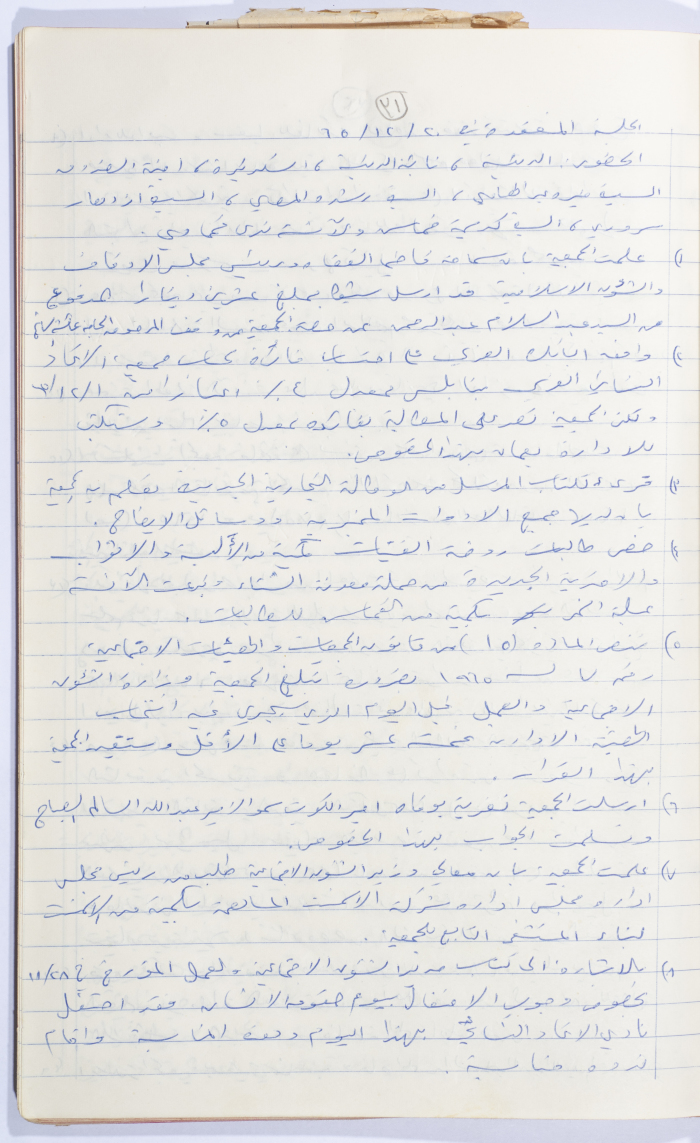 ٣١
الجلسة المنعقدة في ٢٠/١٢/٦٥
الحضور: الرئيسة، نائبة الرئيسة، السكرتيرة، امينة الصندوق
السيدة رشدة المصري، السيدة ازدهار
سروري، السيدة كريمة والآنسة ندى
١) علمت الجمعية بان سماحة قاضي القضاة ورئيس مجلس الاوقاف
والشئون الاسلامية قد ارسل شيكا بمبلغ عشرين دينارا المدفوع
من السيد عبد السلام عبد الرحمن عن حصة الجمعية من وقف المرحومة الحاجة
٢) وافق البنك العربي على احتساب فائدة لحساب جمعية الاتحاد
النسائي العربي بنابلس بمعدل ٤٪ اعتبارا من ١/١٢/
ولكن الجمعية تصر على المطالبة بفائدة بمعدل ٥٪ وستكتب
للادارة بعمان بهذا الخصوص.
٣) قرىء الكتاب المرسل من الوكالة التجارية الجديدة تعلم به الجمعية
بان لديها جميع الادوات المخبرية ووسائل الايضاح.
٤) خص طالبات روضة الفتيات كمية من الألبسة والاثواب
والاحذية الجديدة من حملة معونة الشتاء وتبرعت الآنسة
عبلة بكمية من القماش للطالبات.
٥) تنص المادة (١٥) من قانون الجمعيات والهيئات الاجتماعية
رقم ٧ لسنة ١٩٦٥ بضرورة تبليغ الجمعية وزارة الشؤون
الاجتماعية والعمل قبل اليوم الذي سيجري فيه انتخاب
الهيئة الادارية بخمسة عشر يوما على الأقل وستتقيد الجمعية
بهذا القرار.
٦) ارسلت الجمعية تعزية بوفاة امير الكويت سمو الامير عبد الله السالم الصباح
وتسلمت الجواب بهذا الخصوص.
٧) علمت الجمعية بان معالي وزير الشئون الاجتماعية طلب من رئيس مجلس
ادارة مجلس ادارة شركة الاسمنت المساهمة بكمية من الاسمنت
لبناء المستشفى التابع للجمعية.
٨) بالاشارة الى كتاب مدير الشئون الاجتماعية والعمل المؤرخ في ٢٨/١١
بخصوص وجوب الاحتفال بيوم حقوق الانسان فقد احتفل
نادي الاتحاد النسائي بهذا اليوم المناسبة واقام
ندوة مناسبة.